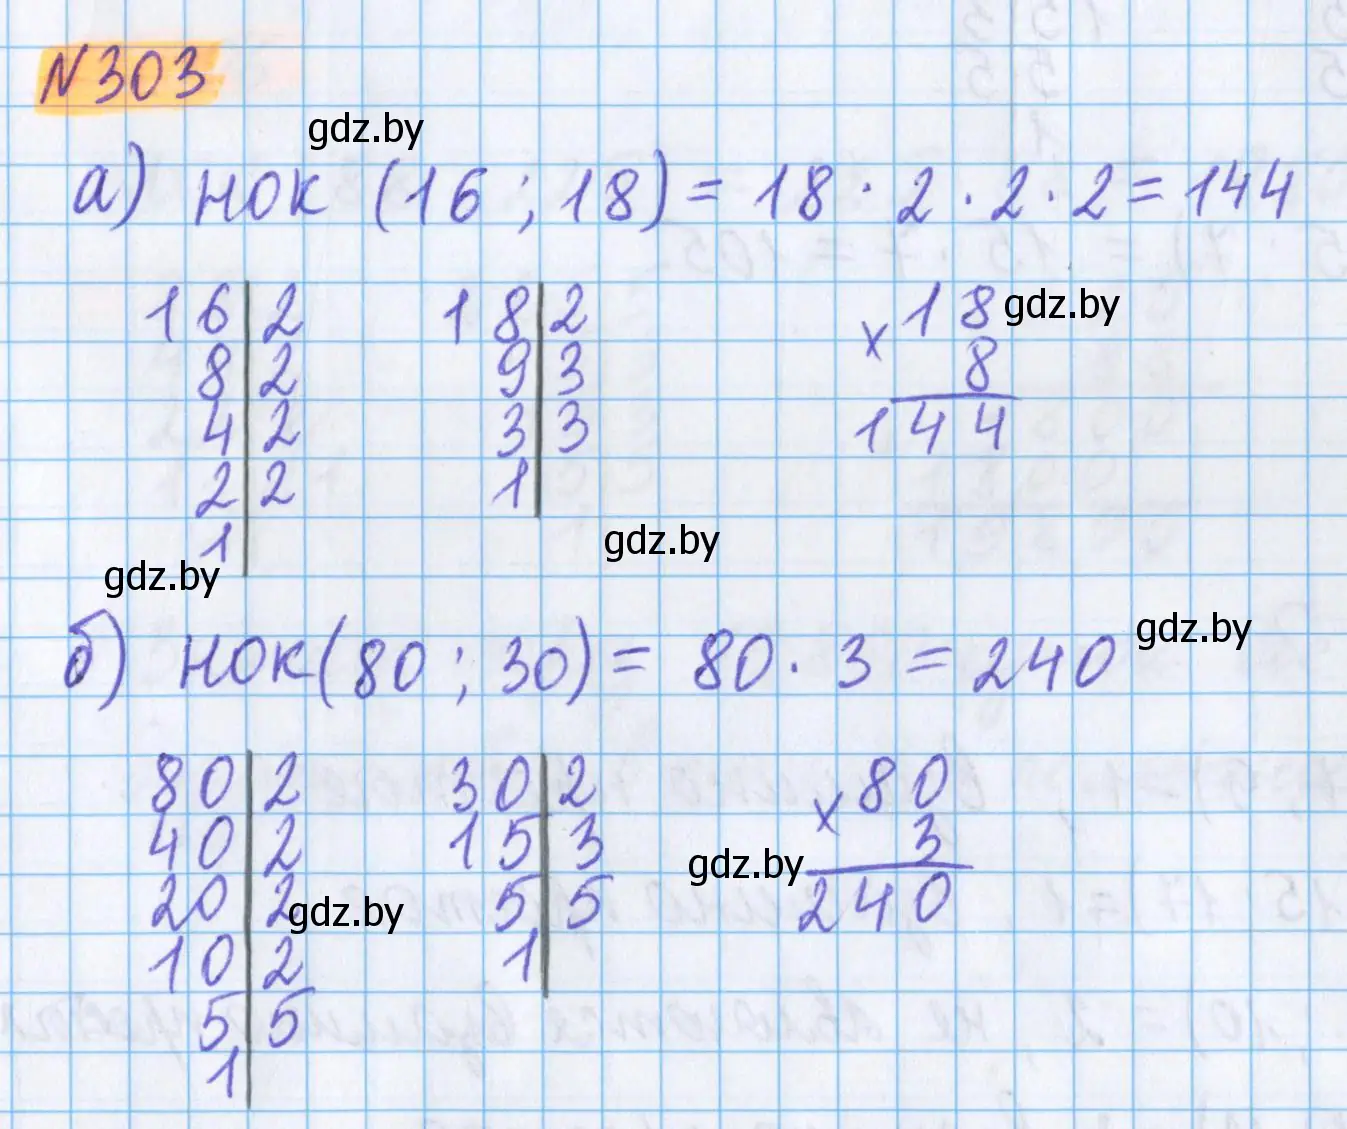 N303
gdz.by
а) НОК (16 ; 18) = 18 · 2 · 2 · 2 = 144
16 | 2    18 | 2    × 18 gdz.by
8 | 2    9 | 3    8
4 | 2    3 | 3    144
2 | 2    1 |
1 |    gdz.by
gdz.by
б) НОК(80 ; 30) = 80 · 3 = 240 gdz.by
80 | 2    30 | 2    × 80
40 | 2    15 | 3    3
20 | 2 gdz.by    5 | 5    gdz.by 240
10 | 2    1 |
5 | 5
1 |